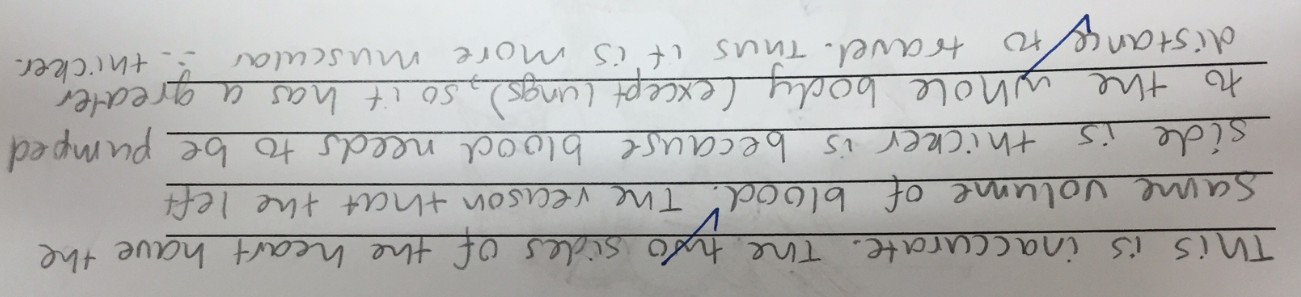 This is inaccurate. The two sides of the heart have the
same volume of blood. The reason that the left
side is thicker is because blood needs to be pumped
to the whole body (except lungs), so it has a greater
distance to travel. Thus it is more muscular ∴ thicker.